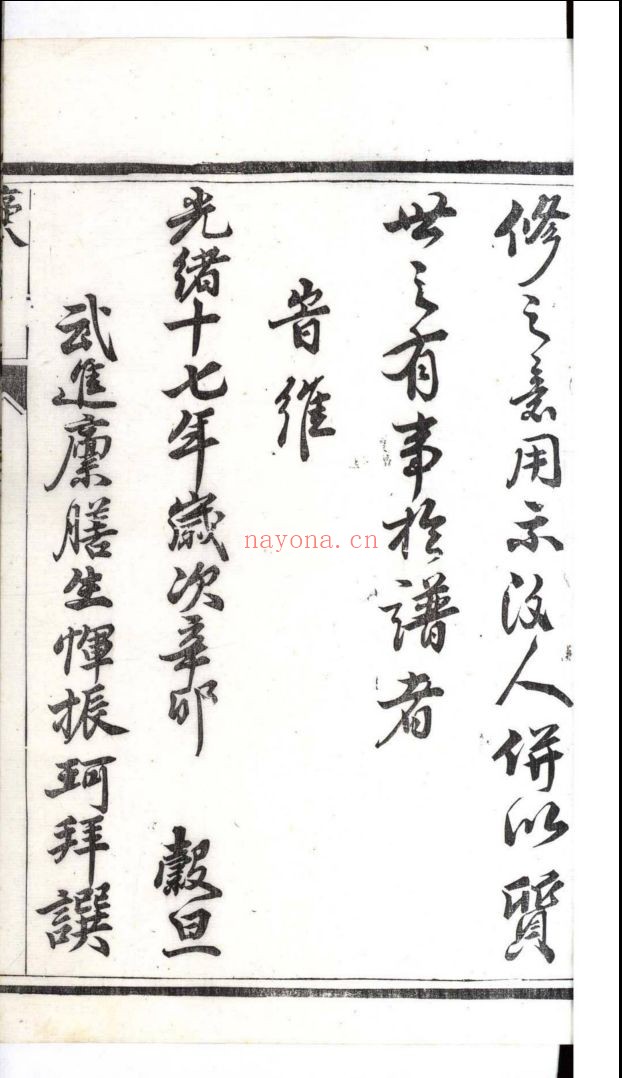 修之意用示後人併以質
世之有事於譜者
旹維
光緒十七年歲次辛卯 穀旦
武進廩膳生惲振珂拜譔
nayona.cn